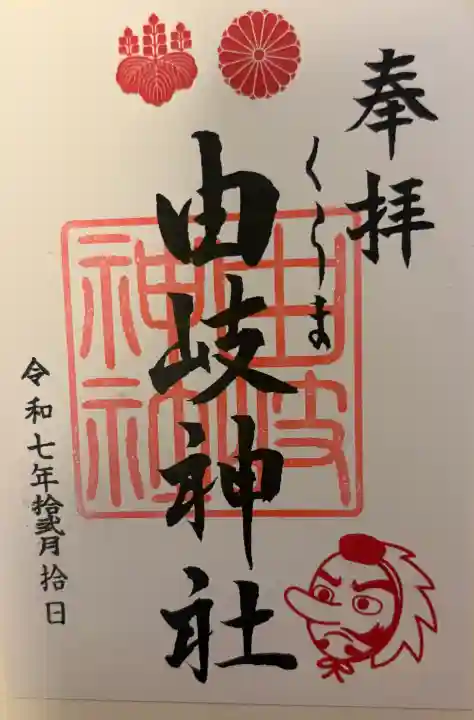 奉拝
くらま
由岐神社
由岐神社
令和七年拾弐月拾日